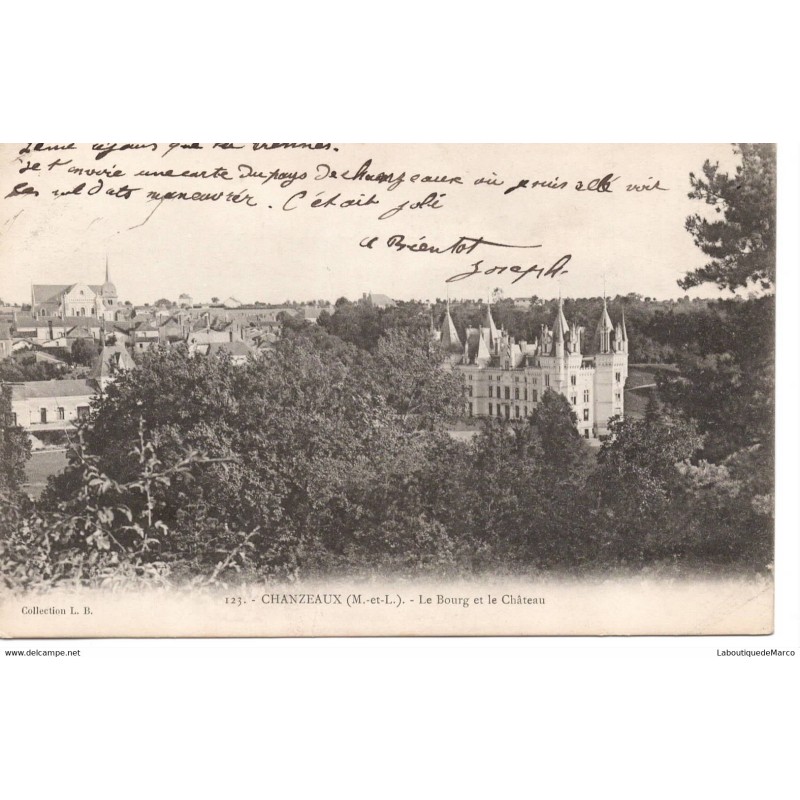 que tu viennes.
Je t'envoie une carte du pays de chanzeaux où je suis allé voir
les soldats manœuvrér. C'était joli
a Bientot
Joseph
123. - CHANZEAUX (M.-et-L.). - Le Bourg et le Château
Collection L. B.
www.delcampe.net
LaboutiquedeMarco